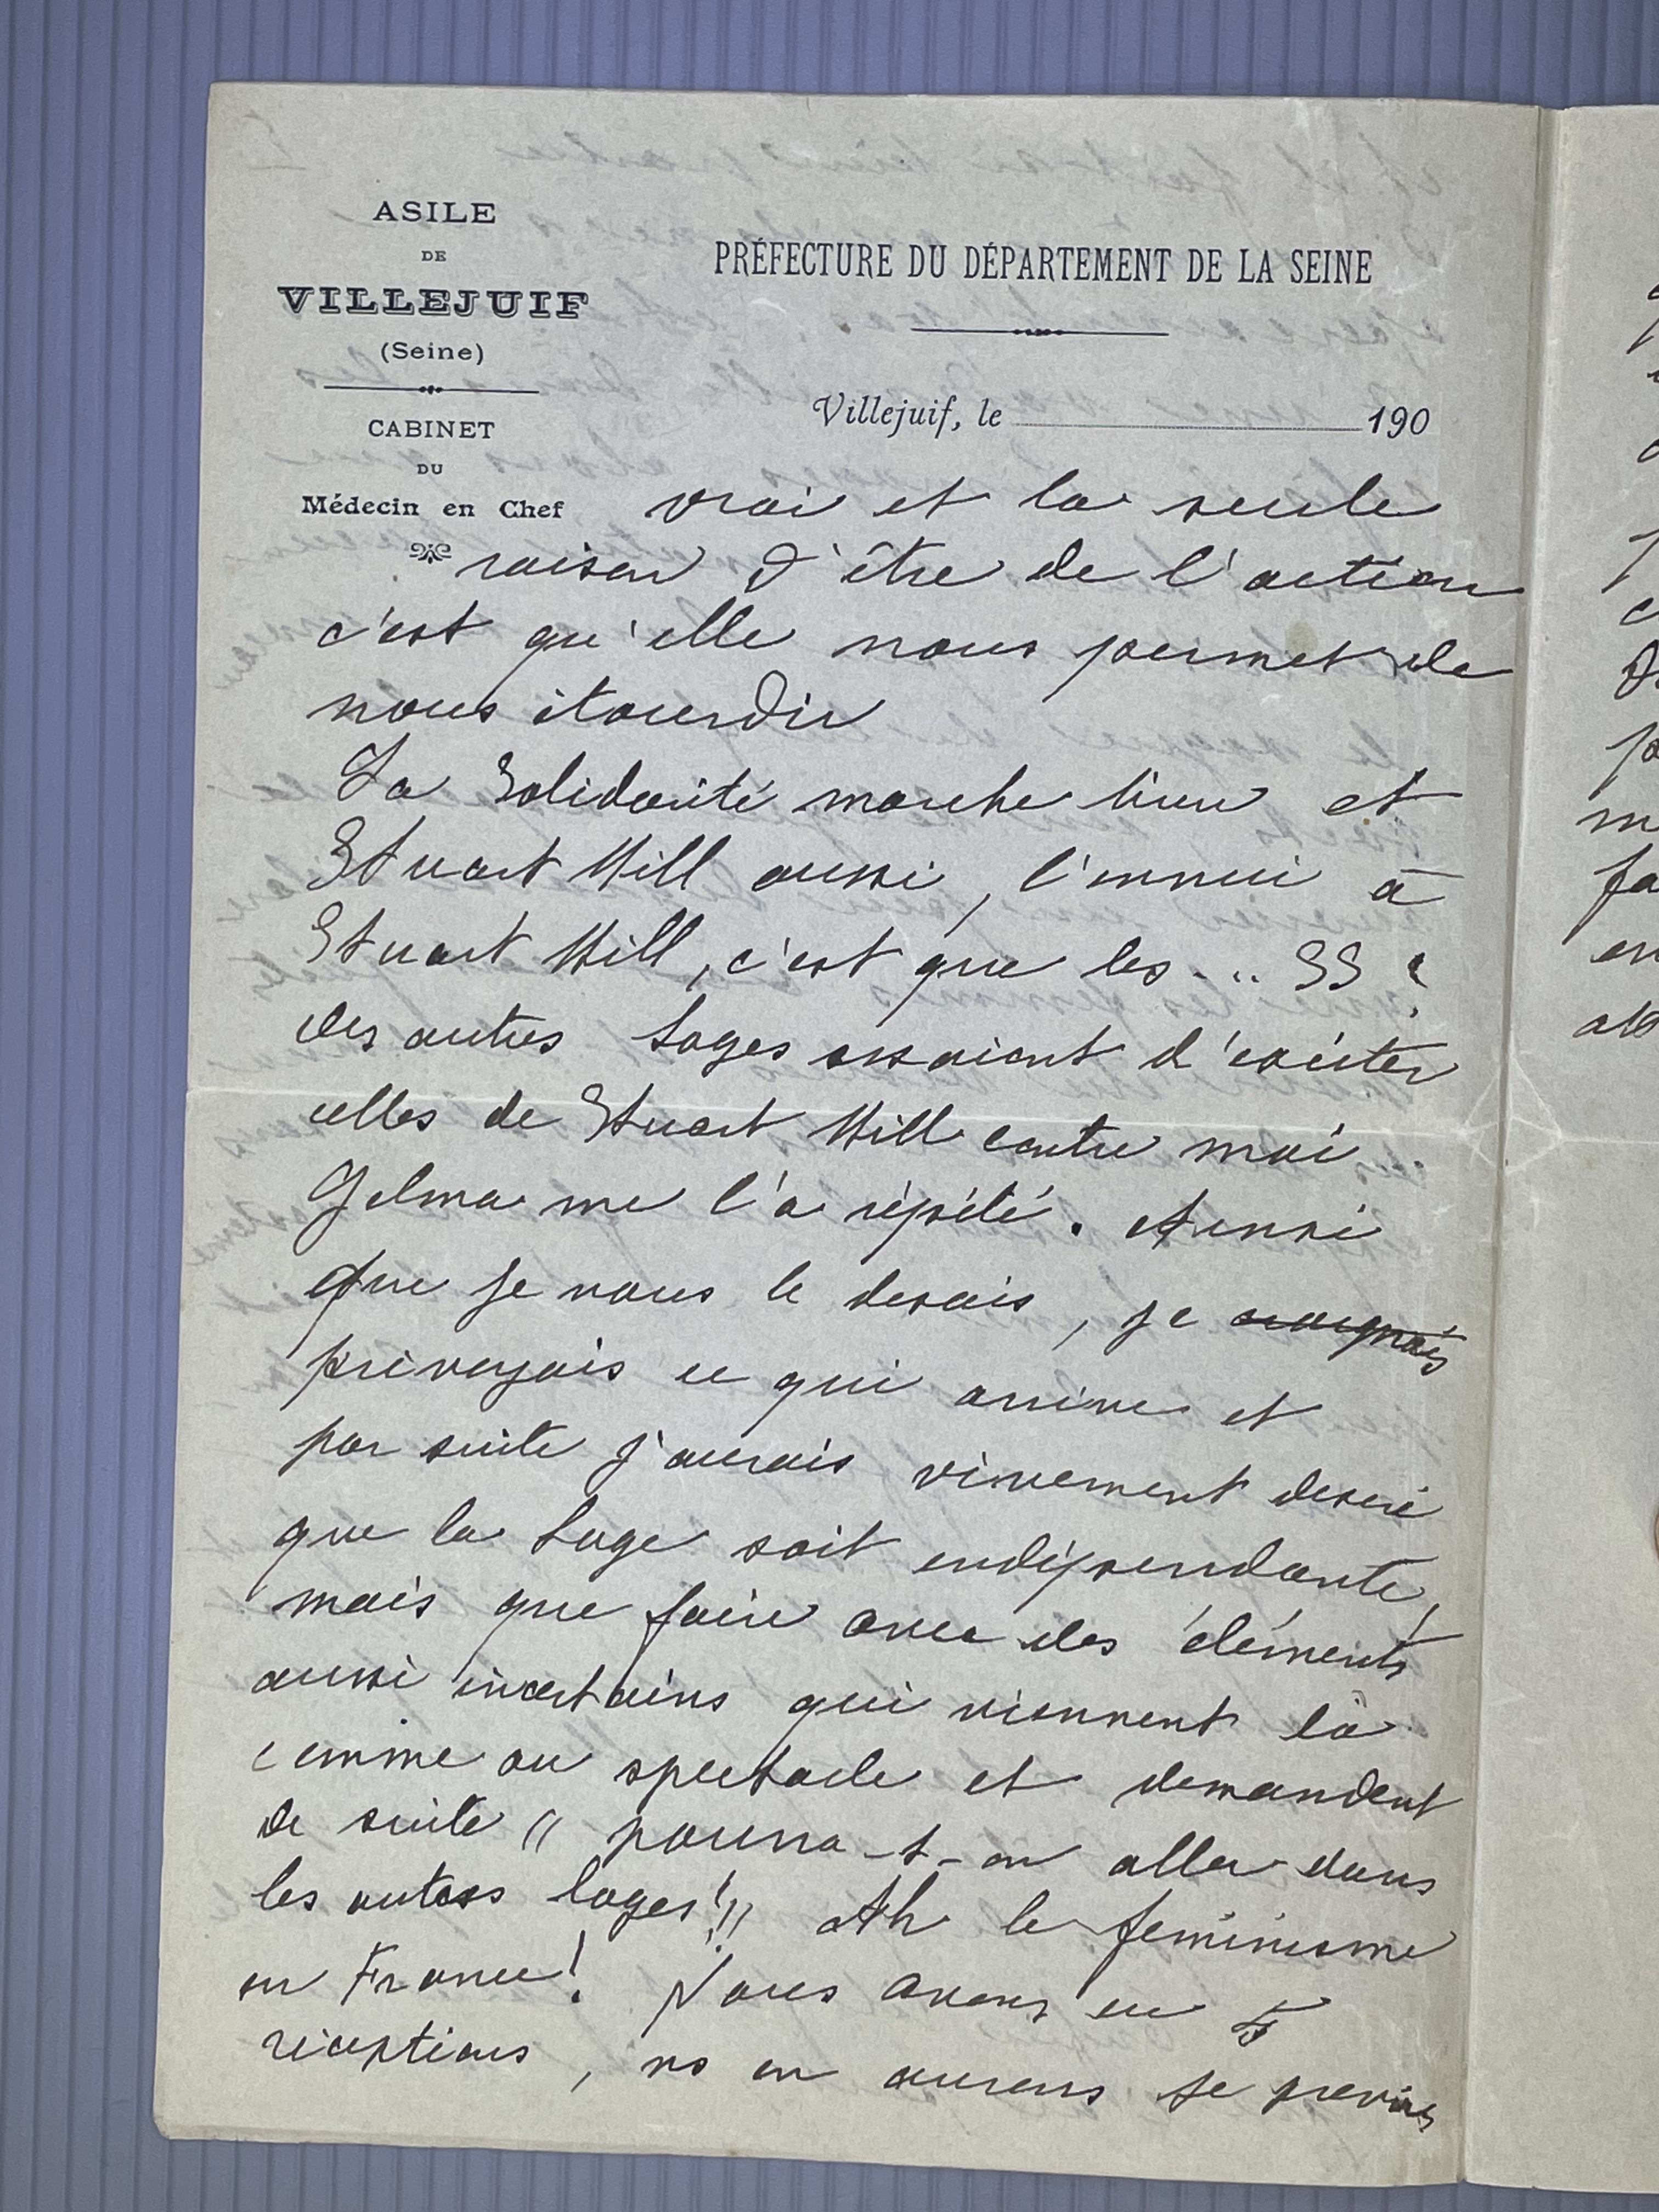 ASILE
DE
VILLEJUIF
(Seine)
CABINET
DU
Médecin en Chef
PRÉFECTURE DU DÉPARTEMENT DE LA SEINE
Villejuif, le 190
vrai et la seule
raison d'être de l'action
c'est qu'elle nous permet de
nous étourdir
La Solidarité marche bien et
Stuart Mill aussi, l'ennui à
Stuart Mill, c'est que les ... SS
des autres Loges essaient d'exciter
celles de Stuart Mill contre moi
me l'a répété. Ainsi
que je vous le desais, je craignais
prévoyais ce qui arrive et
par suite j'aurais vivement desiré
que la Loge soit indépendante,
mais que faire avec des éléments
aussi incertains qui viennent là
comme au spectacle et demandent
de suite " pourra-t-on aller dans
les autres loges!!" Ah le feminisme
en France! Nous avons eu 5
réceptions, ns en aurons je prévois